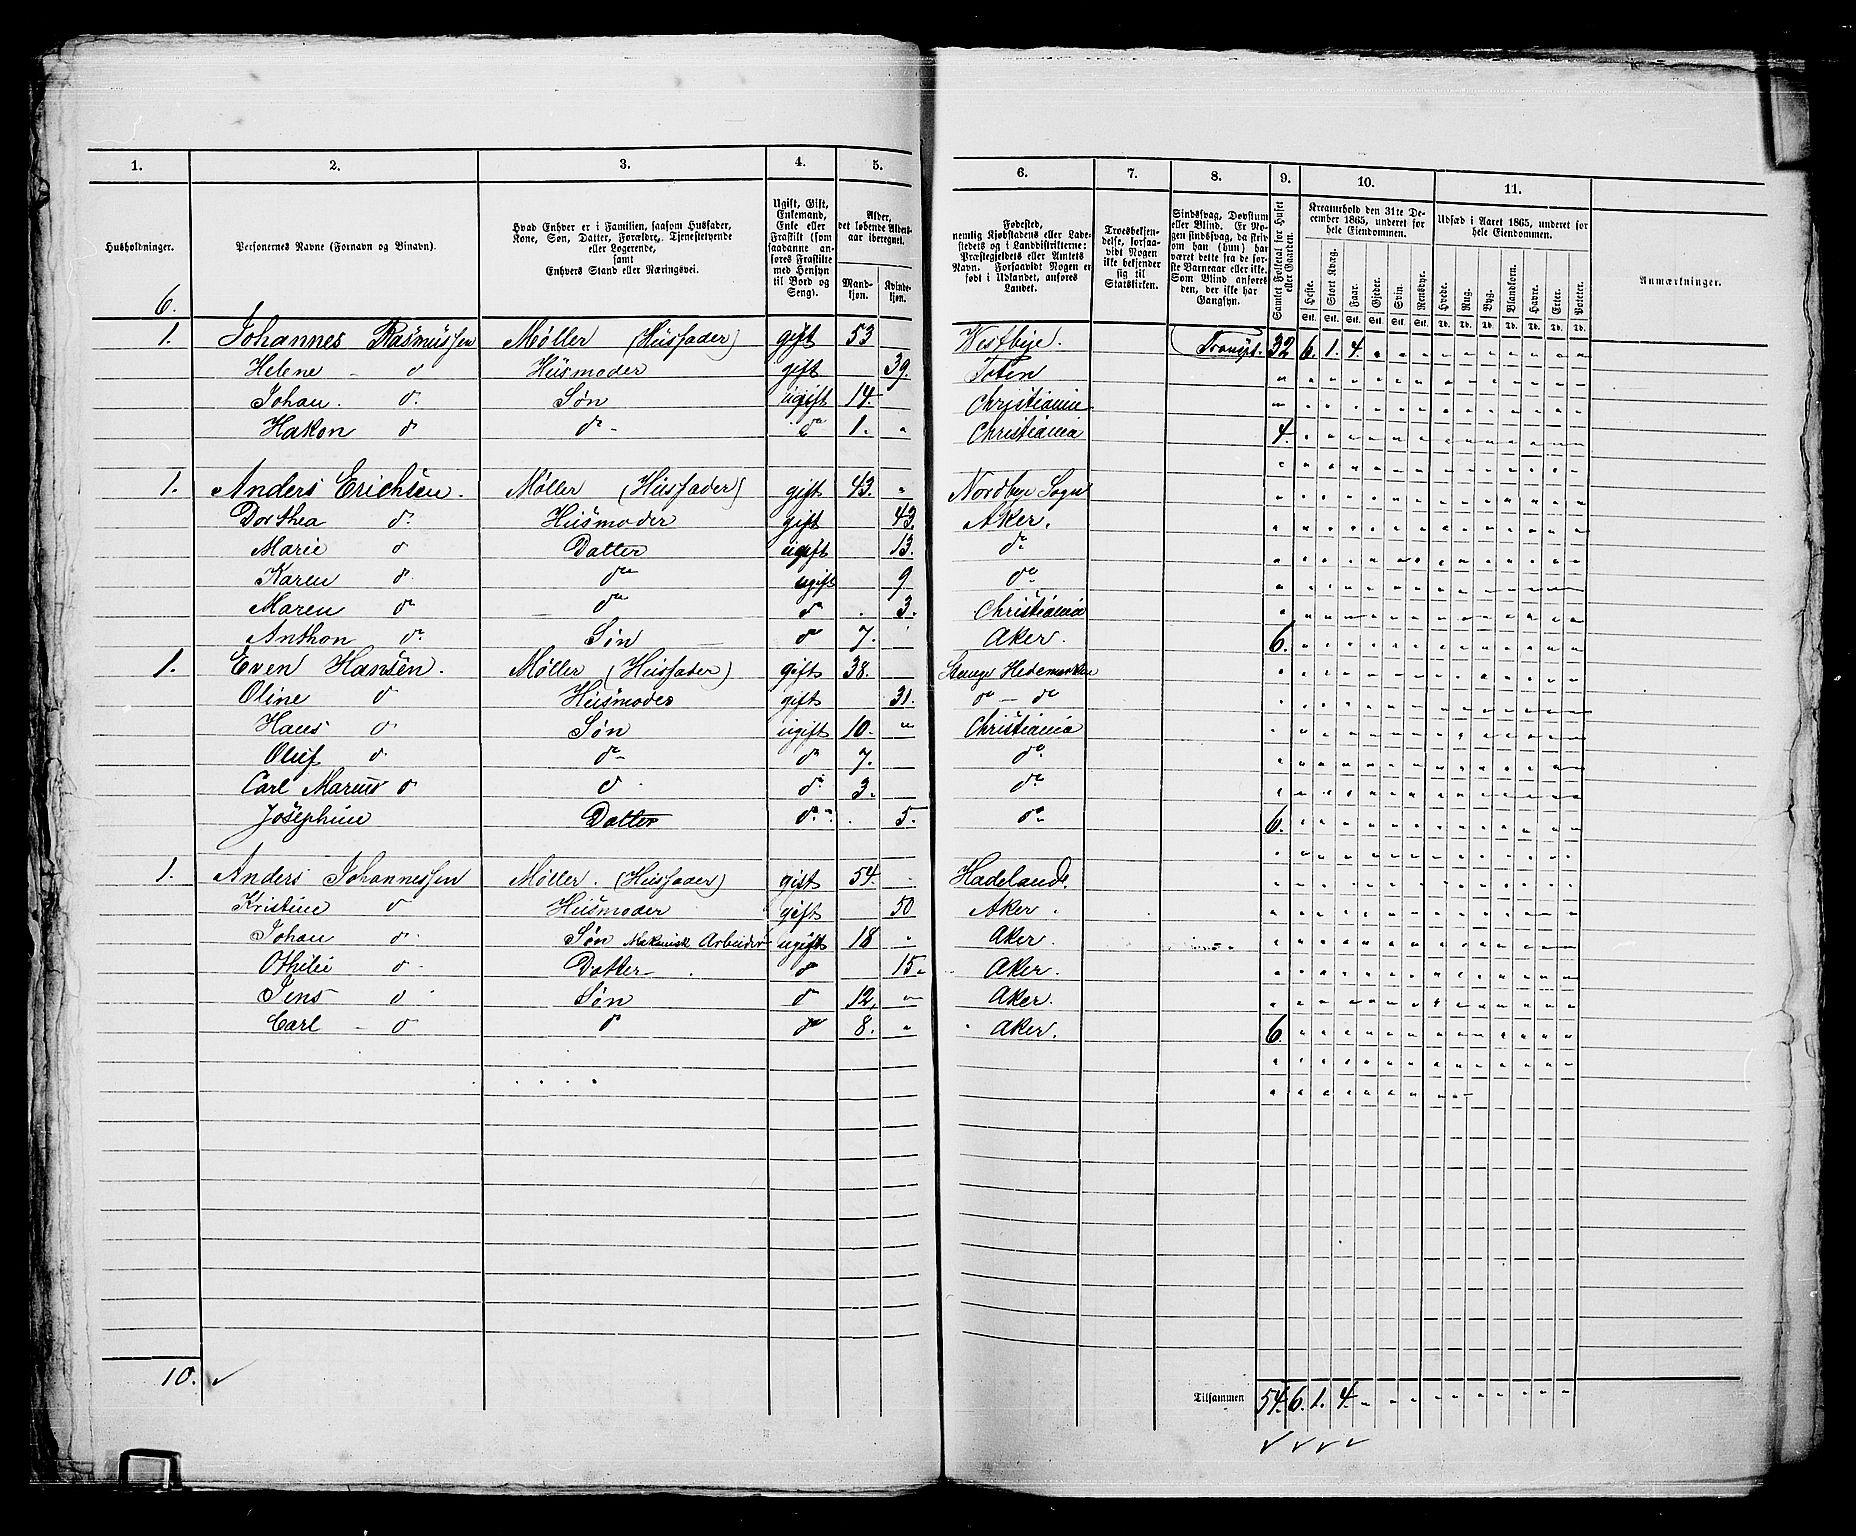 1. 2. 3. 4. 5. 6. 7. 8. 9. 10. 11.
Husholdninger.
Personernes Navne (Fornavn og Binavn).
Hvad Enhver er i Familien, saasom Husfader, Kone, Søn, Datter, Forældre, Tjenestetyende eller Logerende, samt Enhvers Stand eller Næringsvei.
Ugift, Gift, Enkemand, Enke eller Fraskilt (som saadanne anføres Fraskilte med Hensyn til Bord og Seng).
Alder, det løbende Aldersaar iberegnet.
Mandkjøn. Kvindekjøn.
Fødested, nemlig Kjøbstadens eller Ladestedets og i Landdistrikterne: Præstegjeldets eller Amtets Navn. Forsaavidt Nogen er født i Udlandet, anføres Landet.
Troesbekjendelse, forsaavidt Nogen ikke bekjender sig til Statskirken.
Sindssvag, Døvstum eller Blind. Er Nogen sindssvag, da skriv om han (hun) har været dette fra de første Barneaar eller ikke. Som Blind anføres den, der ikke har Gangsyn.
Samlet Folketal for Huset eller Gaarden.
Kreaturhold den 31te December 1865, underet for hele Eiendommen.
Heste. Stort Kvæg. Faar. Gjeder. Svin. Rensdyr.
Stk. Stk. Stk. Stk. Stk. Stk.
Udsæd i Aaret 1865, underet for hele Eiendommen.
Hvede. Rug. Byg. Blandkorn. Havre. Erter. Poteter.
Td. Td. Td. Td. Td. Td. Td.
Anmærkninger.
6.
1. Johannes Rasmussen Møller (Husfader) gift 53 Westbye. Transpt. 32 6. 1. 4.
Helene d Husmoder gift 39. Toten
Johan. d. Søn ugift 14. Christiania
Hakon d do do 1. Christiania 4.
1. Anders Erichsen. Møller (Husfader) gift 43. Nordbye Sogn
Dorthea d. Husmoder gift 43. Aker.
Marie d Datter ugift 13. do
Karen d. do ugift 9 do
Maren do do do 3. Christiania
Anthon do Søn d 7. Aker. 6.
1. Even Hansen. Møller (Husfader) gift 38. Stange Hedemarken
Oline d Husmoder gift 31. do - do
Hans d Søn ugift 10. Christiania
Oluf d. do d 7. do
Carl Marius d d do 3. do
Josephine Datter do 5. do 6.
1. Anders Johannessen Møller. (Husfader) gift 54. Hadeland.
Kristine d Husmoder gift 50 Aker.
Johan d. Søn Mekanisk Arbeider ugift 18 Aker.
Othilie d Datter d 15. Aker.
Jens d Søn do 12. Aker.
Carl d d do 8. Aker. 6.
10.
Tilsammen 54. 6. 1. 4.